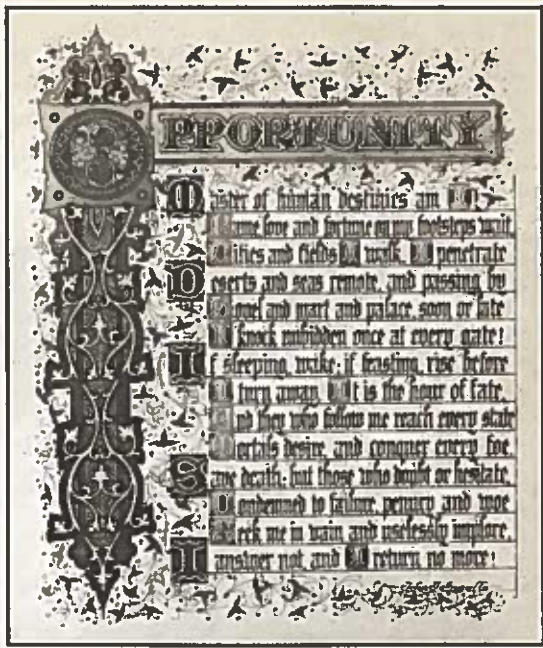 OPPORTUNITY
Master of human destinies am I!
Fame, love and fortune on my footsteps wait.
Cities and fields I walk. I penetrate
Deserts and seas remote, and passing by
Hovel and mart and palace, soon or late
I knock unbidden once at every gate!
If sleeping, wake; if feasting, rise before
I turn away. It is the hour of fate,
And they who follow me reach every state
Mortals desire, and conquer every foe
Save death; but those who doubt or hesitate,
Condemned to failure, penury and woe
Seek me in vain and uselessly implore,
I answer not, and I return no more!